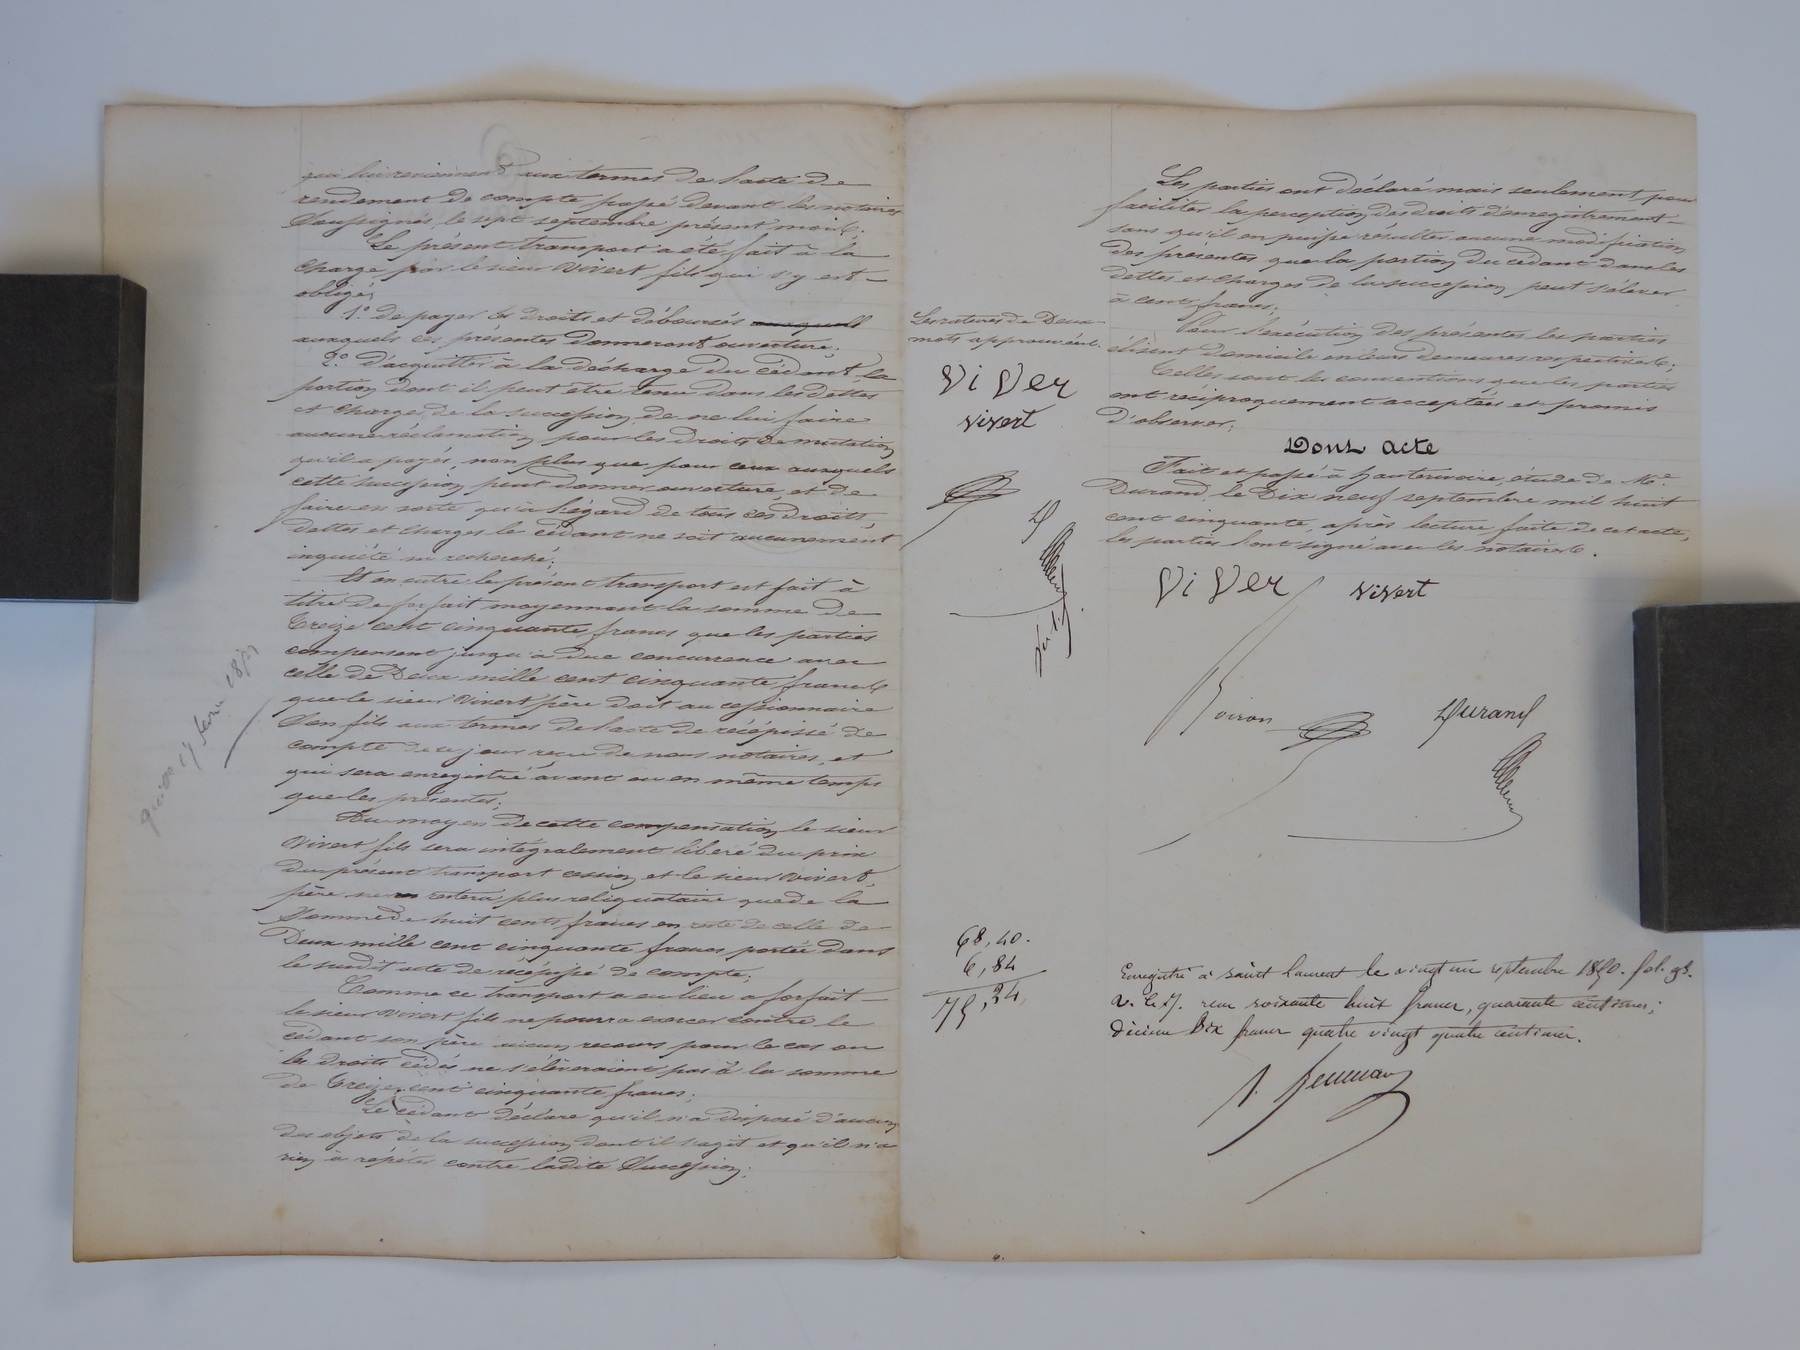 qui lui reviennent aux termes de l'acte de
rendement de compte passé devant les notaires
soussignés, le sept septembre présent mois.
Le présent transport a été fait à la
charge par le sieur Vivert fils qui s'y est
obligé,
1° de payer les droits et déboursés
auxquels ces présentes donneront ouverture;
2° d'acquitter à la décharge du cédant la
portion dont il peut être tenu dans les dettes
et charges de la succession, de ne lui faire
aucune réclamation pour les droits de mutation
qu'il a payés, non plus que pour ceux auxquels
cette succession peut donner ouverture, et de
faire en sorte qu'à l'égard de tous ces droits,
dettes et charges le cédant ne soit aucunement
inquiété ni recherché;
Et en outre le présent transport est fait à
titre de forfait moyennant la somme de
Treize cent cinquante francs que les parties
compensent jusqu'à due concurrence avec
celle de Deux mille cent cinquante francs
que le sieur Vivert père doit au cessionnaire
son fils aux termes de l'acte de récépissé de
compte de ce jour reçu de nous notaires, et
qui sera enregistré avant ou en même temps
que les présentes;
Au moyen de cette compensation le sieur
Vivert fils sera intégralement libéré du prix
du présent transport cession et le sieur Vivert,
père ne restera plus reliquataire que de la
somme de huit cents francs en reste de celle de
Deux mille cent cinquante francs portée dans
le susdit acte de récépissé de compte;
Comme ce transport a eu lieu à forfait
le sieur Vivert fils ne pourra exercer contre le
cédant son père aucun recours pour le cas où
les droits cédés ne s'élèveraient pas à la somme
de Treize cent cinquante francs;
Le cédant déclare qu'il n'a disposé d'aucun
des objets de la succession dont il s'agit et qu'il n'a
rien à répéter contre ladite succession;
Les ratures de Deux
mots approuvées.
ViVer
vivert
D
68,40.
6,84
75,24
Les parties ont déclaré mais seulement pour
faciliter la perception des droits d'enregistrement
sans qu'il en puisse résulter aucune modification
des présentes que la portion du cédant dans les
dettes et charges de la succession peut s'élever
à cent francs;
Pour l'exécution des présentes les parties
élisent domicile en leurs demeures respectives;
Telles sont les conventions que les parties
ont réciproquement acceptées et promis
d'observer;
Dont acte
Fait et passé à hauterivoire, étude de Me
Durand, le Dix neuf septembre mil huit
cent cinquante, après lecture faite de cet acte,
les parties l'ont signé avec les notaires.
ViVer vivert
Voiron Durand
Enregistré à saint laurent le vingt un septembre 1850. fol. 93.
v. c. 7. reçu soixante huit francs, quarante centimes;
décime six francs quatre vingt quatre centimes.